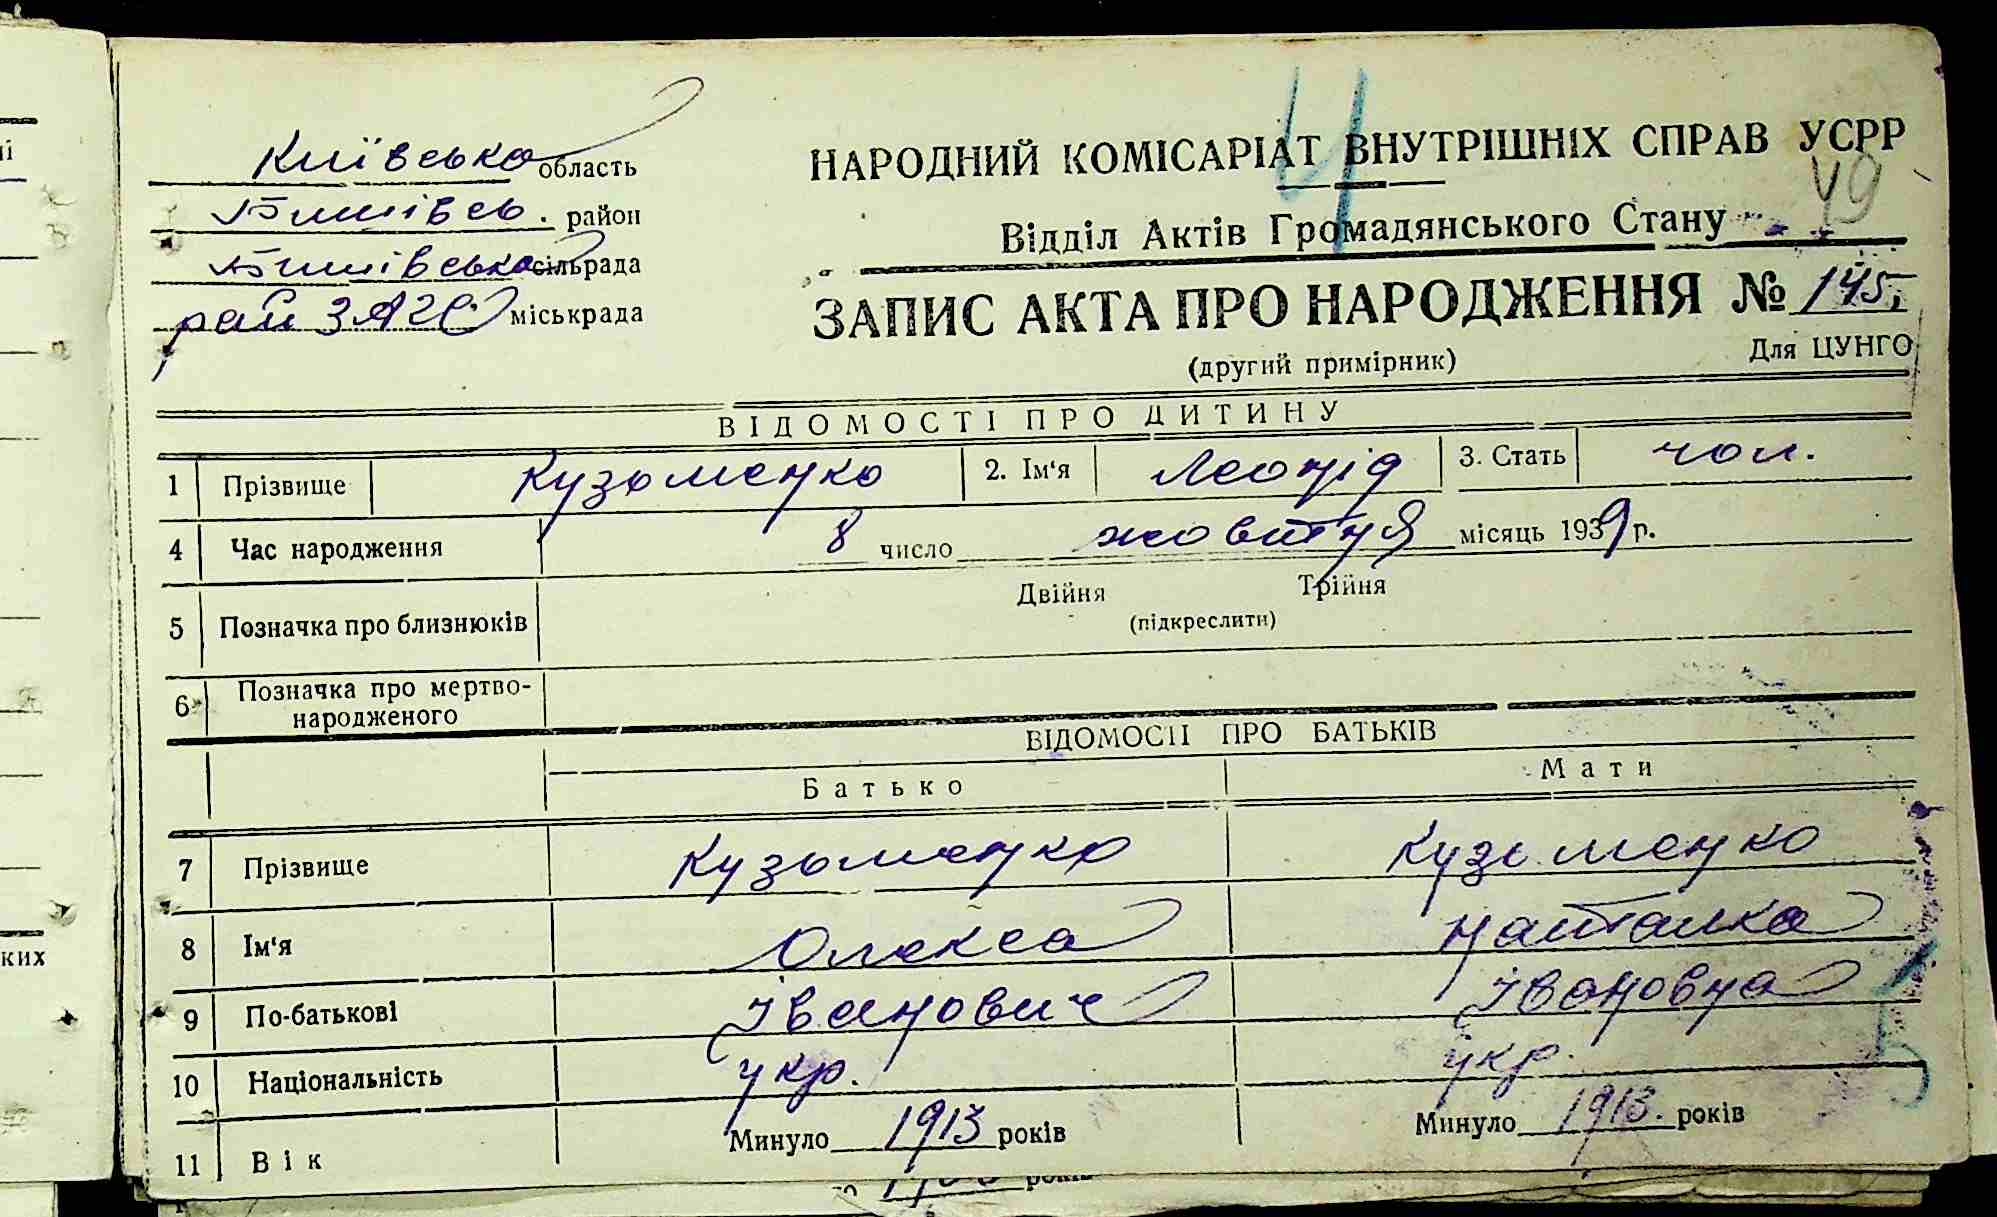 Київська область
Бишівсь. район
Бишівська сільрада
рай ЗАГС міськрада
НАРОДНИЙ КОМІСАРІАТ ВНУТРІШНІХ СПРАВ УСРР
49
Відділ Актів Громадянського Стану
ЗАПИС АКТА ПРО НАРОДЖЕННЯ № 145
(другий примірник)
Для ЦУНГО
ВІДОМОСТІ ПРО ДИТИНУ
1 Прізвище Кузьменко 2. Ім'я Леонід 3. Стать чол.
4 Час народження 8 число жовтня місяць 1939 р.
5 Позначка про близнюків Двійня Трійня
(підкреслити)
6 Позначка про мертво-
народженого
ВІДОМОСТІ ПРО БАТЬКІВ
Батько Мати
7 Прізвище Кузьменко Кузьменко
8 Ім'я Олекса Наталка
9 По-батькові Іванович Івановна
10 Національність укр. укр.
11 Вік Минуло 1913 років Минуло 1913. років
ких